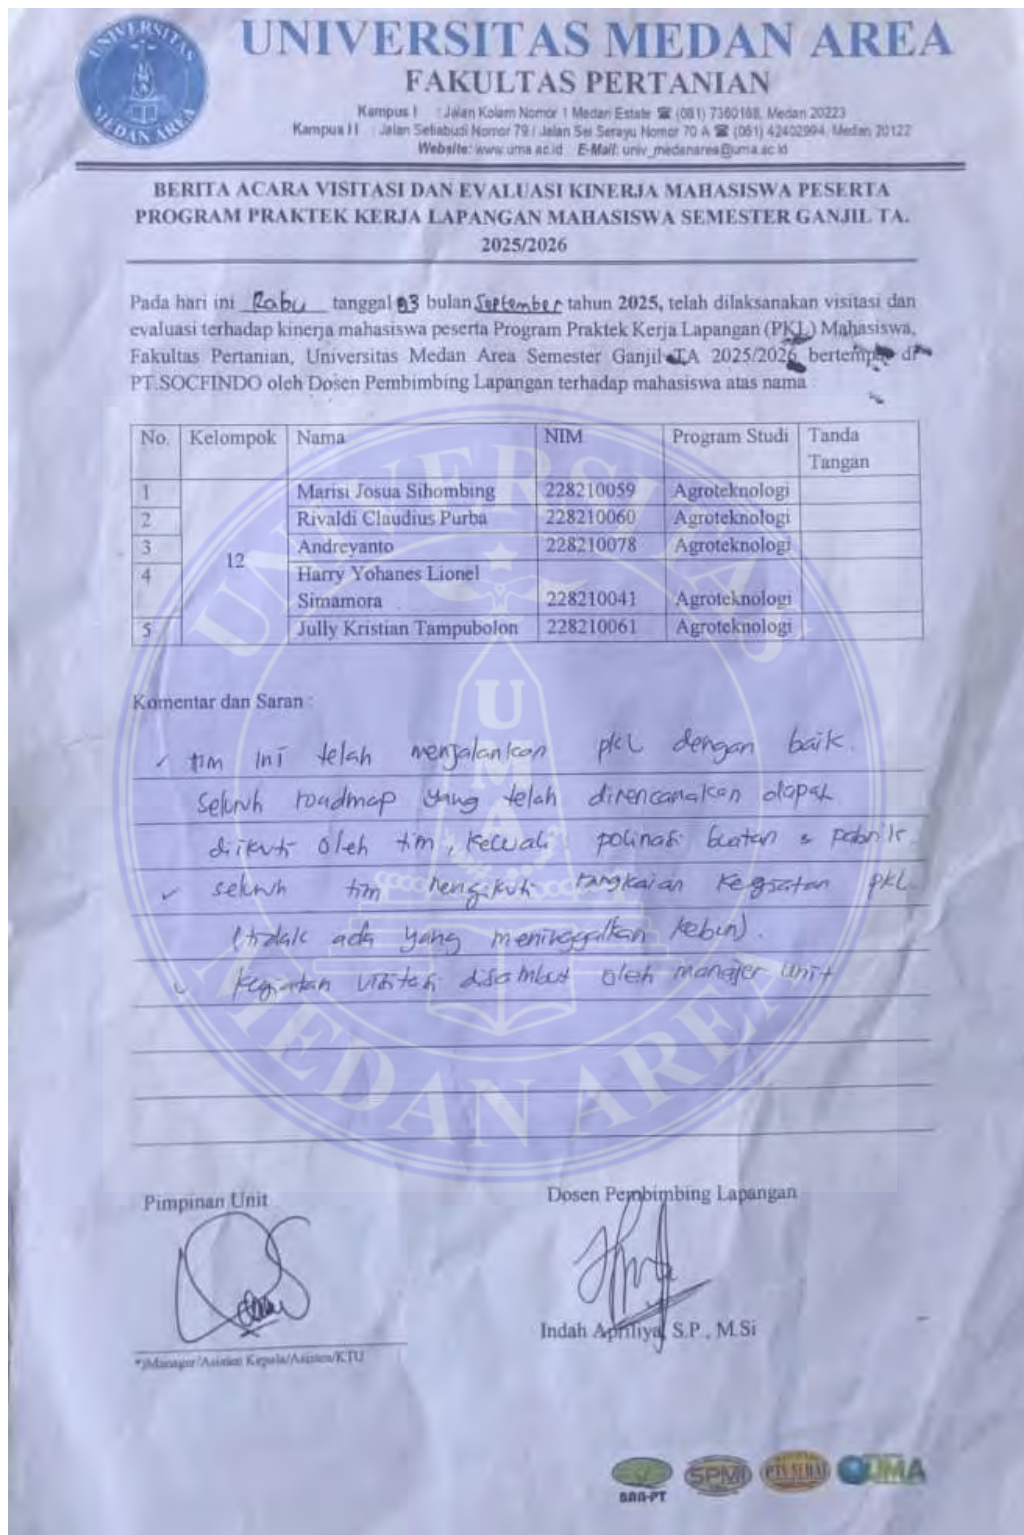 UNIVERSITAS MEDAN AREA
FAKULTAS PERTANIAN
Kampus I : Jalan Kolam Nomor 1 Medan Estate ☎ (061) 7360168, Medan 20223
Kampus II : Jalan Setiabudi Nomor 79 / Jalan Sei Serayu Nomor 70 A ☎ (061) 42402994, Medan 20122
Website: www.uma.ac.id E-Mail: univ_medanarea@uma.ac.id
BERITA ACARA VISITASI DAN EVALUASI KINERJA MAHASISWA PESERTA
PROGRAM PRAKTEK KERJA LAPANGAN MAHASISWA SEMESTER GANJIL TA.
2025/2026
Pada hari ini Rabu tanggal 03 bulan September tahun 2025, telah dilaksanakan visitasi dan
evaluasi terhadap kinerja mahasiswa peserta Program Praktek Kerja Lapangan (PKL) Mahasiswa,
Fakultas Pertanian, Universitas Medan Area Semester Ganjil TA 2025/2026 bertempat di
PT.SOCFINDO oleh Dosen Pembimbing Lapangan terhadap mahasiswa atas nama :
No. Kelompok Nama NIM Program Studi Tanda Tangan
1 Marisi Josua Sihombing 228210059 Agroteknologi
2 Rivaldi Claudius Purba 228210060 Agroteknologi
3 Andreyanto 228210078 Agroteknologi
12
4 Harry Yohanes Lionel
Simamora 228210041 Agroteknologi
5 Jully Kristian Tampubolon 228210061 Agroteknologi
Komentar dan Saran :
✓ tim ini telah menjalankan pkl dengan baik.
Seluruh roadmap yang telah direncanakan dapat
diikuti oleh tim, kecuali polinasi buatan & pabrik.
✓ seluruh tim mengikuti rangkaian kegiatan PKL
(tidak ada yang meninggalkan kebun).
✓ kegiatan visitasi disambut oleh manajer unit
Pimpinan Unit
Dosen Pembimbing Lapangan
Indah Apriliya, S.P., M.Si
*)Manager/Asisten Kepala/Asisten/KTU
UNIVERSITAS MEDAN AREA
UMA
BAN-PT
SPMI
UMA